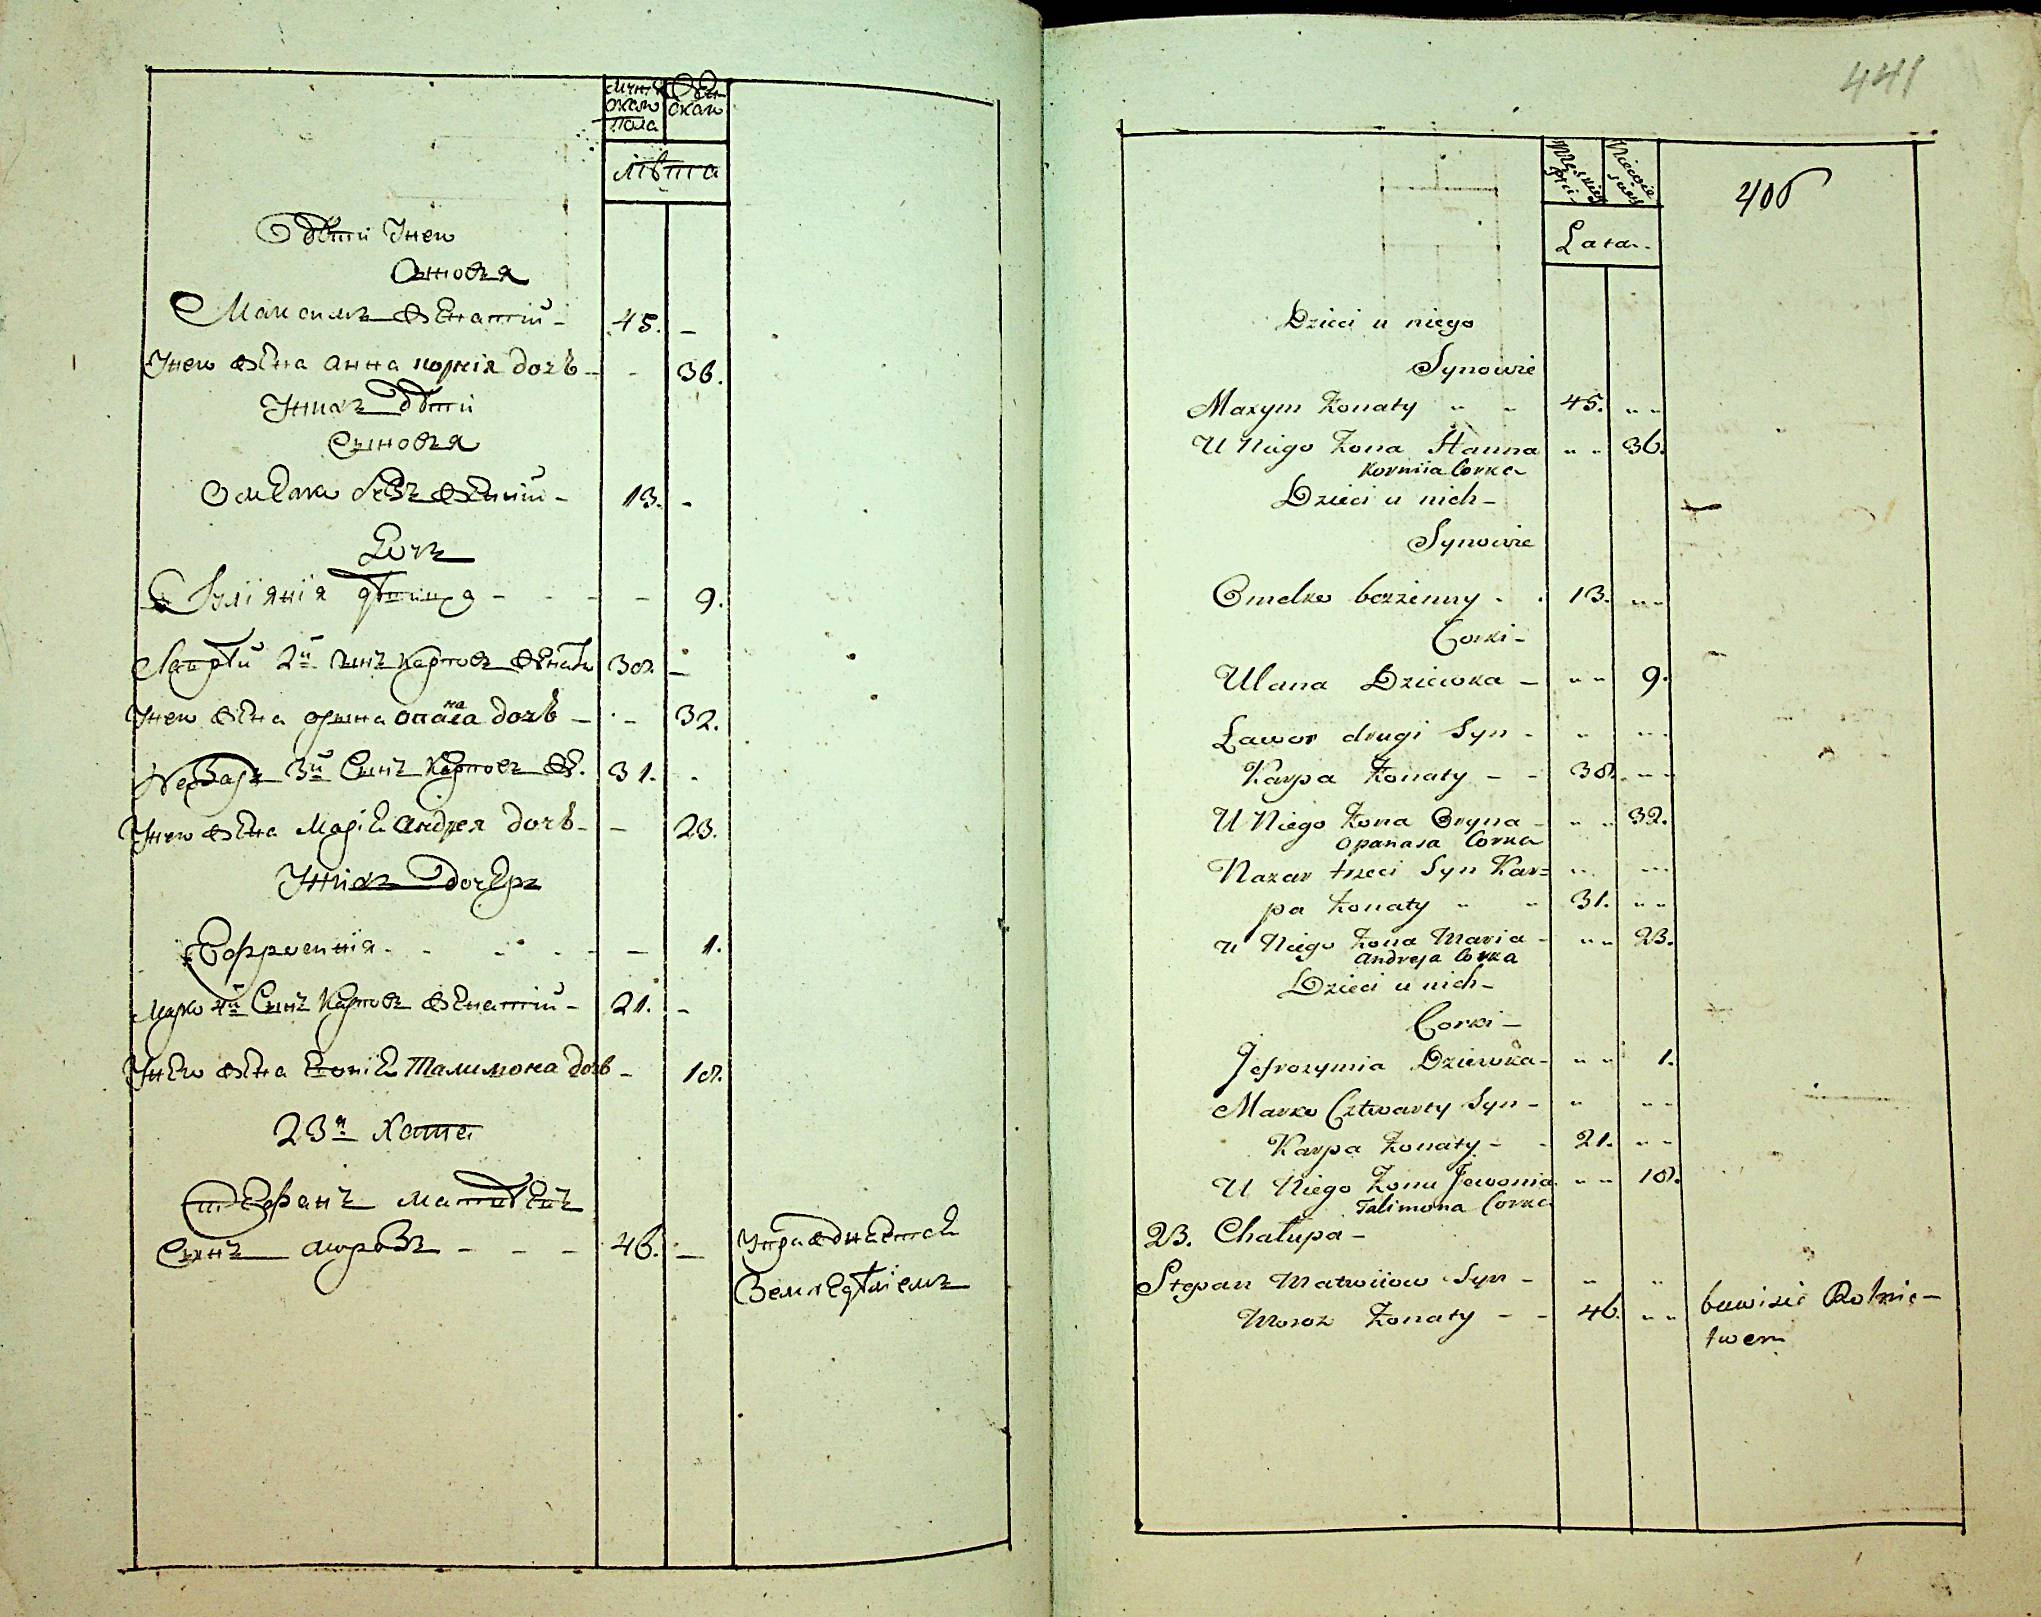 мужеска пола
женска
лѣта
дѣти у него
Сыновья
Максимъ женатый - 45. -
у него жена анна корнія дочь - - 36.
у нихъ дѣти
Сыновья
Омелко безъ жены - 13. -
Дочь
Іуліянія дѣвица - - - - 9.
Лаврѣй 2й сынъ карповъ женатъ 38 -
у него жена орина опанаса дочь - - 32.
Назаръ 3й Сынъ Карповъ же. 31. -
у него жена Марія андрея дочь - - 23.
у нихъ дочерь
Ефросинія - - - - 1.
Марко 4й Сынъ Карповъ женатый - 21. -
у него жена Евонія Талимона дочь - 18.
23я Хата
Стефанъ матвѣевъ
Сынъ морозъ - - - 46. - упражняется
Земледѣліемъ
441
408
Męskiej płci
Niewieściej
Lata
Dzieci u niego
Synowie
Maxym Żonaty " " 45. " "
U Niego Żona Hanna " " 36.
Korniia Corka
Dzieci u nich -
Synowie
Omelko bezżenny - . 13. " "
Corki -
Ulana Dziewka - " " 9.
Ławor drugi Syn - " " "
Karpa Żonaty - - 38. " "
U Niego Żona Oryna - " " 32.
Opanasa Corka
Nazar trzeci Syn Kar= " " "
pa Żonaty " " 31. " "
u Niego Żona Maria - " " 23.
Andreja Corka
Dzieci u nich -
Corki -
Jefrozymia Dziewka - " " 1.
Marko Cztwarty Syn - " " "
Karpa Żonaty - - 21. " "
U Niego Żona Jewonia " " 18.
Talimona Corka
23. Chałupa -
Stepan Matwiiow Syn - " "
Moroz Żonaty - - 46. " " bawi się Rolnic-
twem